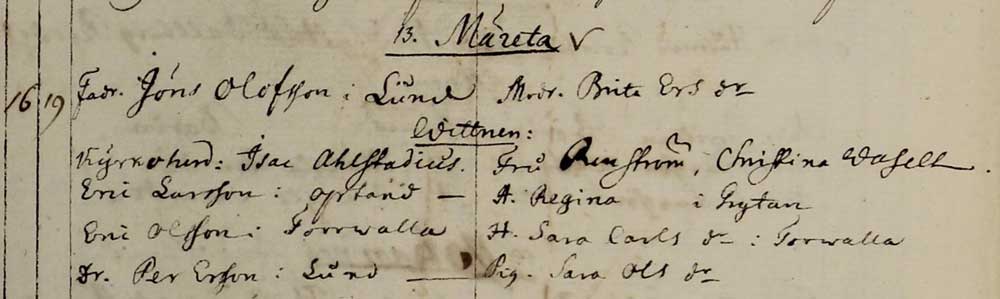 13. Märeta √
16 19 Fadr. Jöns Olofsson i Lund Modr. Brita Ers dr
Wittnen:
Kyrkoherd: Isac Ahlstadius. Fru Renström, Christina Waselt.
Eric Larsson i — H. Regina i Grytan
Eric Olsson i Torrwalla H. Sara Carls dr i Torwalla
Dr. Per Ersson i Lund — Pig. Sara Ols dr